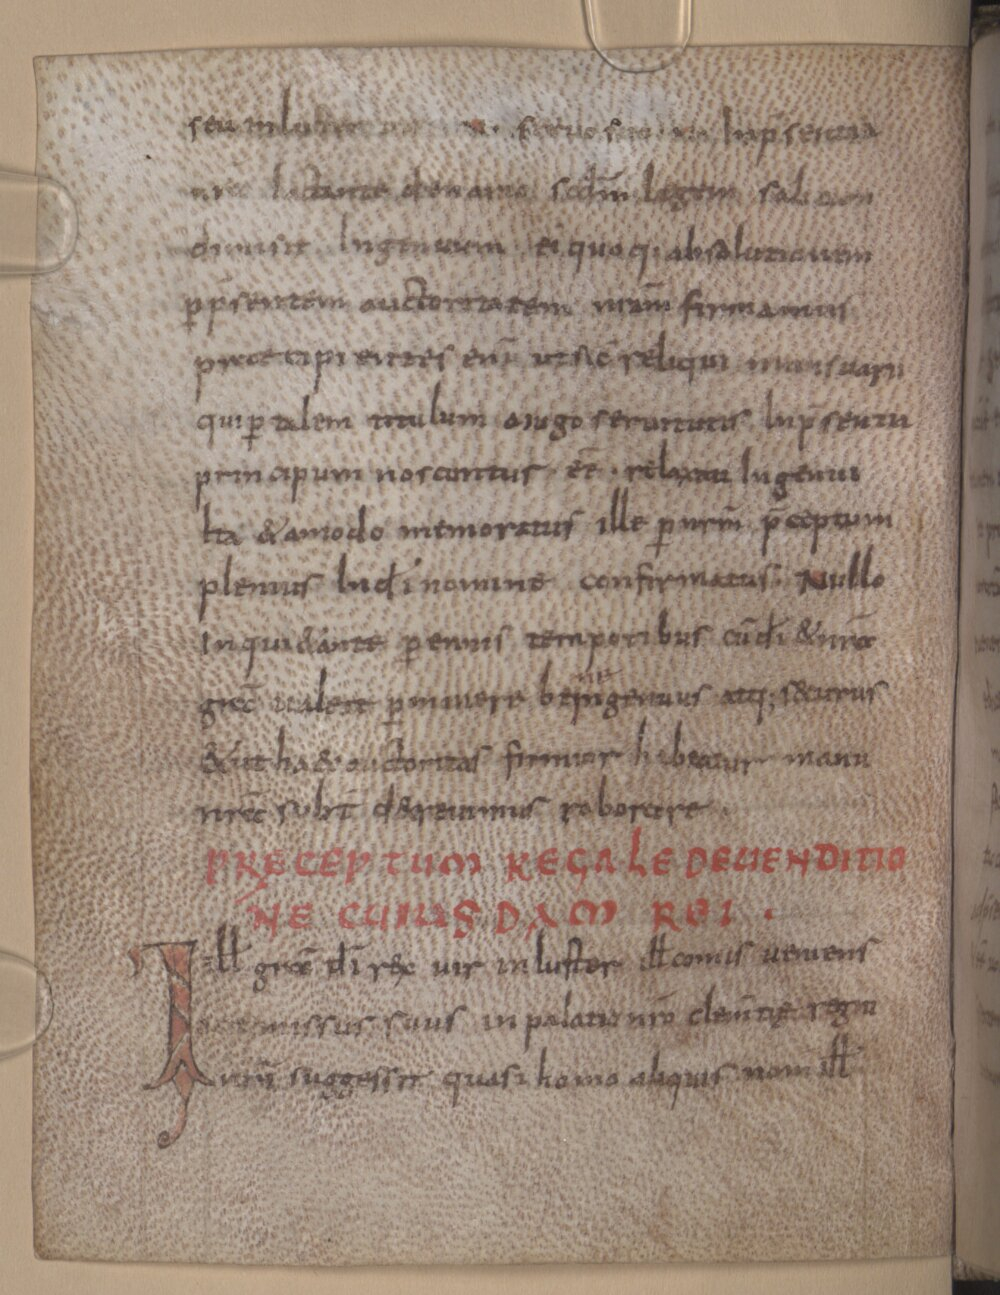 seu inluster seruo suo in
iactante denario scdm legem salicam
dimisit Ingenuum ei quoq; absolutionem
p psentem auctoritatem nram firmamus
precipientes eni ut sic reliqui mansuarii
qui p talem titulum a iugo seruitutis In psentia
principum noscuntur eē relaxati Ingenui
Ita & amodo memoratus ille p nrm pceptum
plenius In di nomine confirmatus Nullo
Inquietante perennis temporibus cū di & nra
gra ualeat permanere bene Ingenuus atq; securus
& ut haec auctoritas firmior habeatur manu
nra subt decreuimus roborare.
PRECEPTUM REGALE DE UENDITIO
NE CUIUSDAM REI .
Ill gra di rex uir inluster ill comis ueniens
missus suus in palatio nro clemtie regni
nri suggessit quasi homo aliquis nom ill